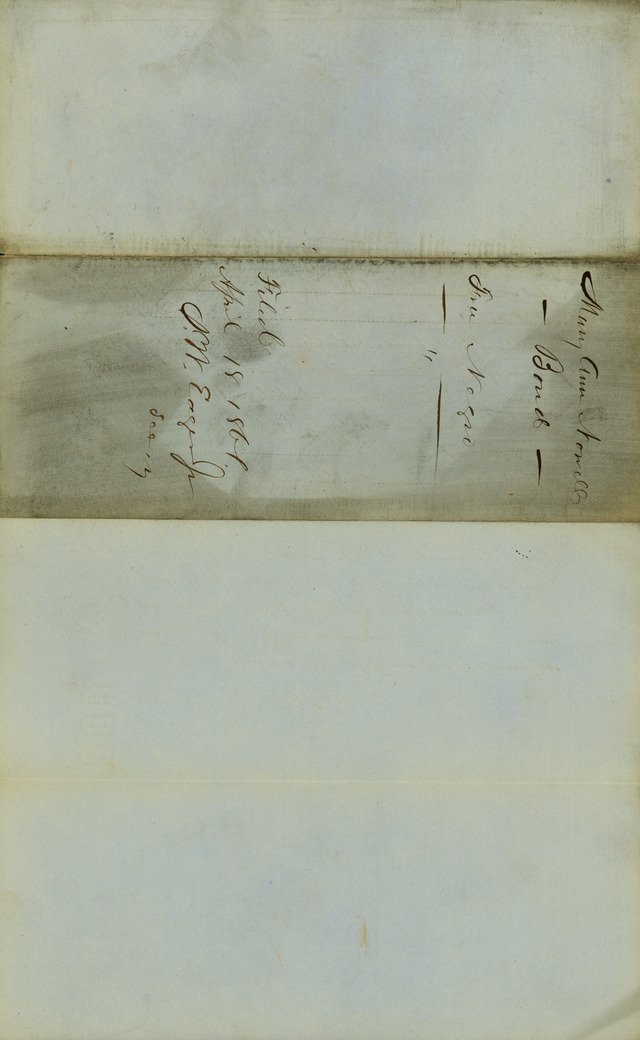 Mary Ann Nowell
— Bond —
Free Negro
— " —
Filed
April 18 1861.